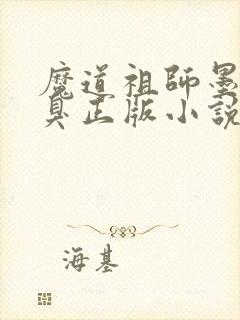 魔道祖師墨
臭正版小說
海基